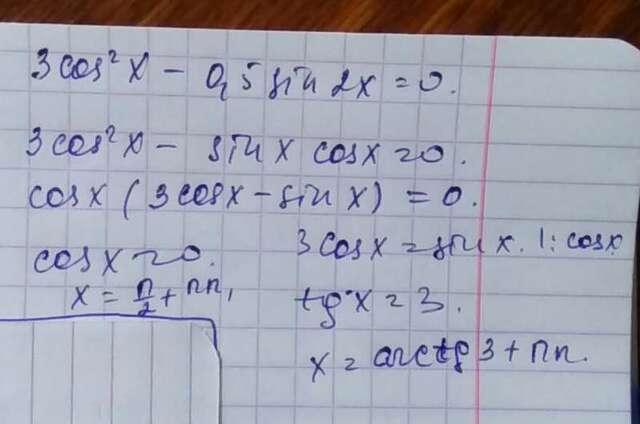 3cos²x − 0,5 sin 2x = 0.
3cos²x − sin x cos x = 0.
cos x (3cos x − sin x) = 0.
cos x = 0.
x = π/2 + πn,
3cos x = sin x. |: cos x
tg x = 3.
x = arctg 3 + πn.